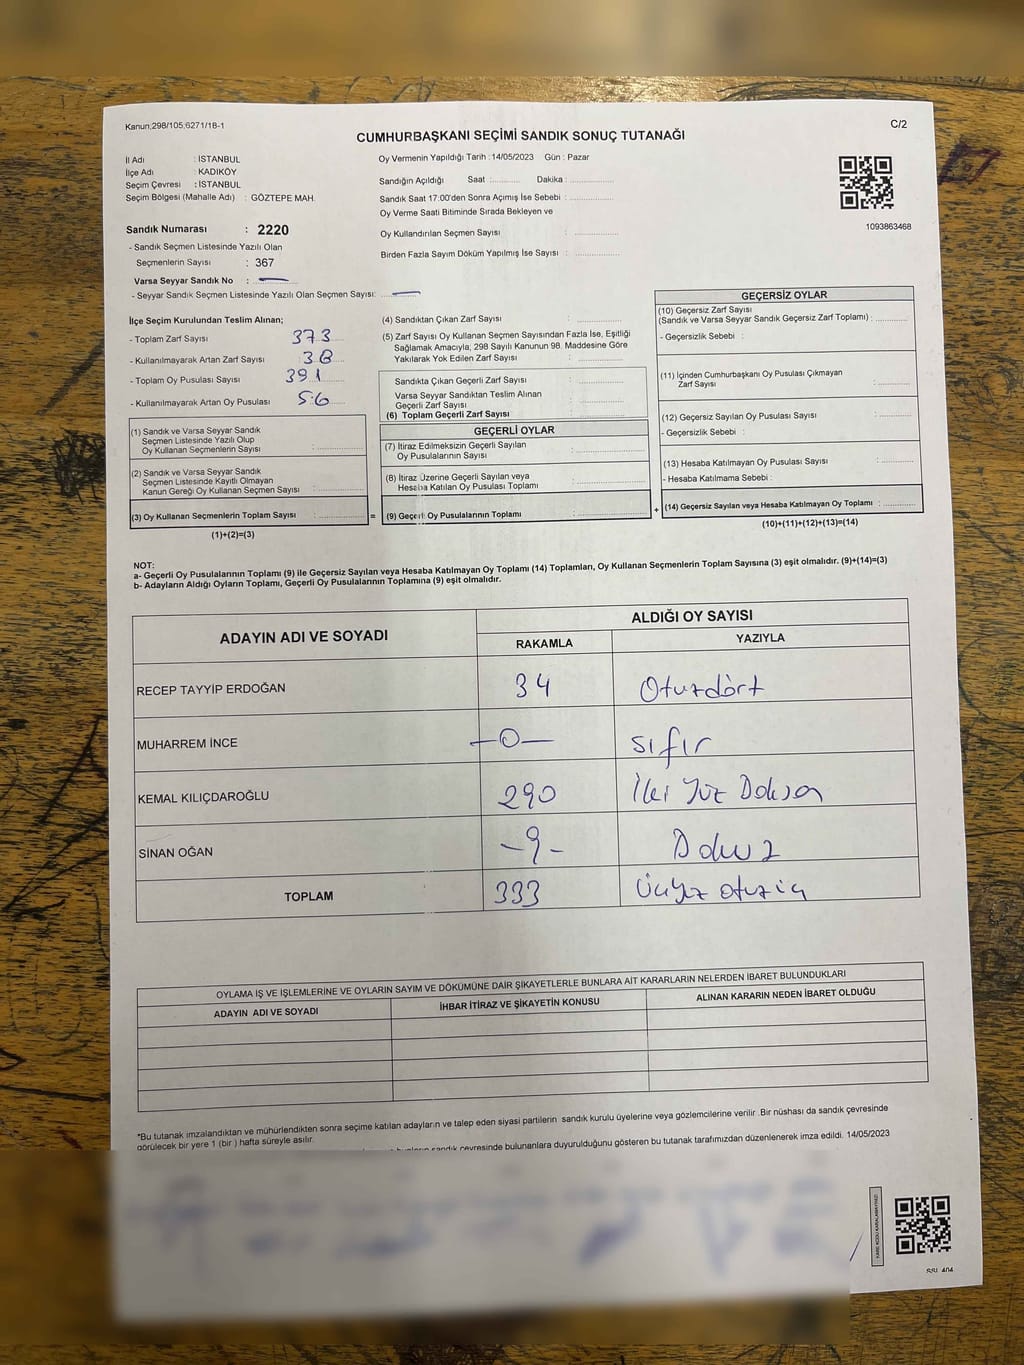 Kanun:298/105,6271/18-1
C/2
CUMHURBAŞKANI SEÇİMİ SANDIK SONUÇ TUTANAĞI
İl Adı : İSTANBUL
İlçe Adı : KADIKÖY
Seçim Çevresi : İSTANBUL
Seçim Bölgesi (Mahalle Adı) : GÖZTEPE MAH.
Oy Vermenin Yapıldığı Tarih : 14/05/2023 Gün : Pazar
Sandığın Açıldığı Saat :........... Dakika : ..................
Sandık Saat 17:00'den Sonra Açımış İse Sebebi : ..................
Oy Verme Saati Bitiminde Sırada Bekleyen ve
Oy Kullandırılan Seçmen Sayısı : ..................
Birden Fazla Sayım Döküm Yapılmış İse Sayısı : ..................
1093863468
Sandık Numarası : 2220
- Sandık Seçmen Listesinde Yazılı Olan
Seçmenlerin Sayısı : 367
Varsa Seyyar Sandık No : —
- Seyyar Sandık Seçmen Listesinde Yazılı Olan Seçmen Sayısı: —
İlçe Seçim Kurulundan Teslim Alınan;
- Toplam Zarf Sayısı 373
- Kullanılmayarak Artan Zarf Sayısı 38
- Toplam Oy Pusulası Sayısı 391
- Kullanılmayarak Artan Oy Pusulası 56
(1) Sandık ve Varsa Seyyar Sandık
Seçmen Listesinde Yazılı Olup
Oy Kullanan Seçmenlerin Sayısı : ..................
(2) Sandık ve Varsa Seyyar Sandık
Seçmen Listesinde Kayıtlı Olmayan
Kanun Gereği Oy Kullanan Seçmen Sayısı : ..................
(3) Oy Kullanan Seçmenlerin Toplam Sayısı : ..................
(1)+(2)=(3)
=
(4) Sandıktan Çıkan Zarf Sayısı : ..................
(5) Zarf Sayısı Oy Kullanan Seçmen Sayısından Fazla İse, Eşitliği
Sağlamak Amacıyla; 298 Sayılı Kanunun 98. Maddesine Göre
Yakılarak Yok Edilen Zarf Sayısı : ..................
Sandıkta Çıkan Geçerli Zarf Sayısı : ..................
Varsa Seyyar Sandıktan Teslim Alınan
Geçerli Zarf Sayısı : ..................
(6) Toplam Geçerli Zarf Sayısı : ..................
GEÇERLİ OYLAR
(7) İtiraz Edilmeksizin Geçerli Sayılan
Oy Pusulalarının Sayısı : ..................
(8) İtiraz Üzerine Geçerli Sayılan veya
Hesaba Katılan Oy Pusulası Toplamı : ..................
(9) Geçerli Oy Pusulalarının Toplamı : ..................
+
GEÇERSİZ OYLAR
(10) Geçersiz Zarf Sayısı
(Sandık ve Varsa Seyyar Sandık Geçersiz Zarf Toplamı) : ..........
- Geçersizlik Sebebi :
(11) İçinden Cumhurbaşkanı Oy Pusulası Çıkmayan
Zarf Sayısı : ..........
(12) Geçersiz Sayılan Oy Pusulası Sayısı : ..........
- Geçersizlik Sebebi :
(13) Hesaba Katılmayan Oy Pusulası Sayısı : ..........
- Hesaba Katılmama Sebebi :
(14) Geçersiz Sayılan veya Hesaba Katılmayan Oy Toplamı : ..........
(10)+(11)+(12)+(13)=(14)
NOT:
a- Geçerli Oy Pusulalarının Toplamı (9) ile Geçersiz Sayılan veya Hesaba Katılmayan Oy Toplamı (14) Toplamları, Oy Kullanan Seçmenlerin Toplam Sayısına (3) eşit olmalıdır. (9)+(14)=(3)
b- Adayların Aldığı Oyların Toplamı, Geçerli Oy Pusulalarının Toplamına (9) eşit olmalıdır.
ADAYIN ADI VE SOYADI
ALDIĞI OY SAYISI
RAKAMLA YAZIYLA
RECEP TAYYİP ERDOĞAN 34 Otuzdört
MUHARREM İNCE —0— sıfır
KEMAL KILIÇDAROĞLU 290 İki Yüz Doksan
SİNAN OĞAN -9- Dokuz
TOPLAM 333 Üçyüz otuz üç
OYLAMA İŞ VE İŞLEMLERİNE VE OYLARIN SAYIM VE DÖKÜMÜNE DAİR ŞİKAYETLERLE BUNLARA AİT KARARLARIN NELERDEN İBARET BULUNDUKLARI
ADAYIN ADI VE SOYADI İHBAR İTİRAZ VE ŞİKAYETİN KONUSU ALINAN KARARIN NEDEN İBARET OLDUĞU
*Bu tutanak imzalandıktan ve mühürlendikten sonra seçime katılan adayların ve talep eden siyasi partilerin sandık kurulu üyelerine veya gözlemcilerine verilir .Bir nüshası da sandık çevresinde
görülecek bir yere 1 (bir ) hafta süreyle asılır.
sandık çevresinde bulunanlara duyurulduğunu gösteren bu tutanak tarafımızdan düzenlenerek imza edildi. 14/05/2023